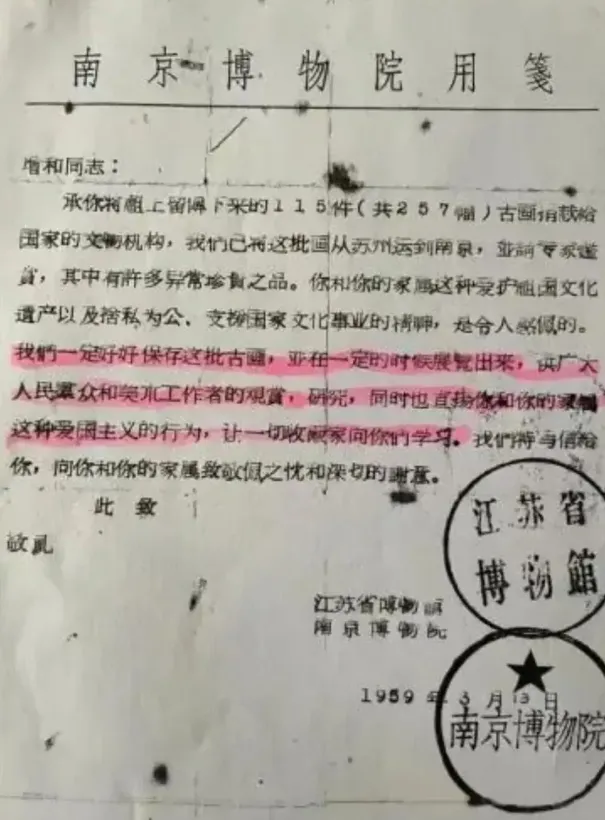 南京博物院用箋
增和同志：
承你将祖上留傳下来的115件(共257幅)古画捐献给
国家的文物机构，我们已将这批画从苏州运到南京，並請专家鉴
賞，其中有許多异常珍貴之品。你和你的家属这种爱护祖国文化
遺产以及捨私为公、支援国家文化事业的精神，是令人感佩的。
我們一定好好保存这批古画，並在一定的时候展覽出来，供广大
人民羣众和美术工作者的观賞，研究，同时也宣揚你和你的家属
这种爱国主义的行为，让一切收藏家向你們学习。我們特与信給
你，向你和你的家属致敬佩之忱和深切的謝意。
此致
敬礼
江苏省博物館
南京博物院
1959年3月13日
江苏省
博物館
南京博物院